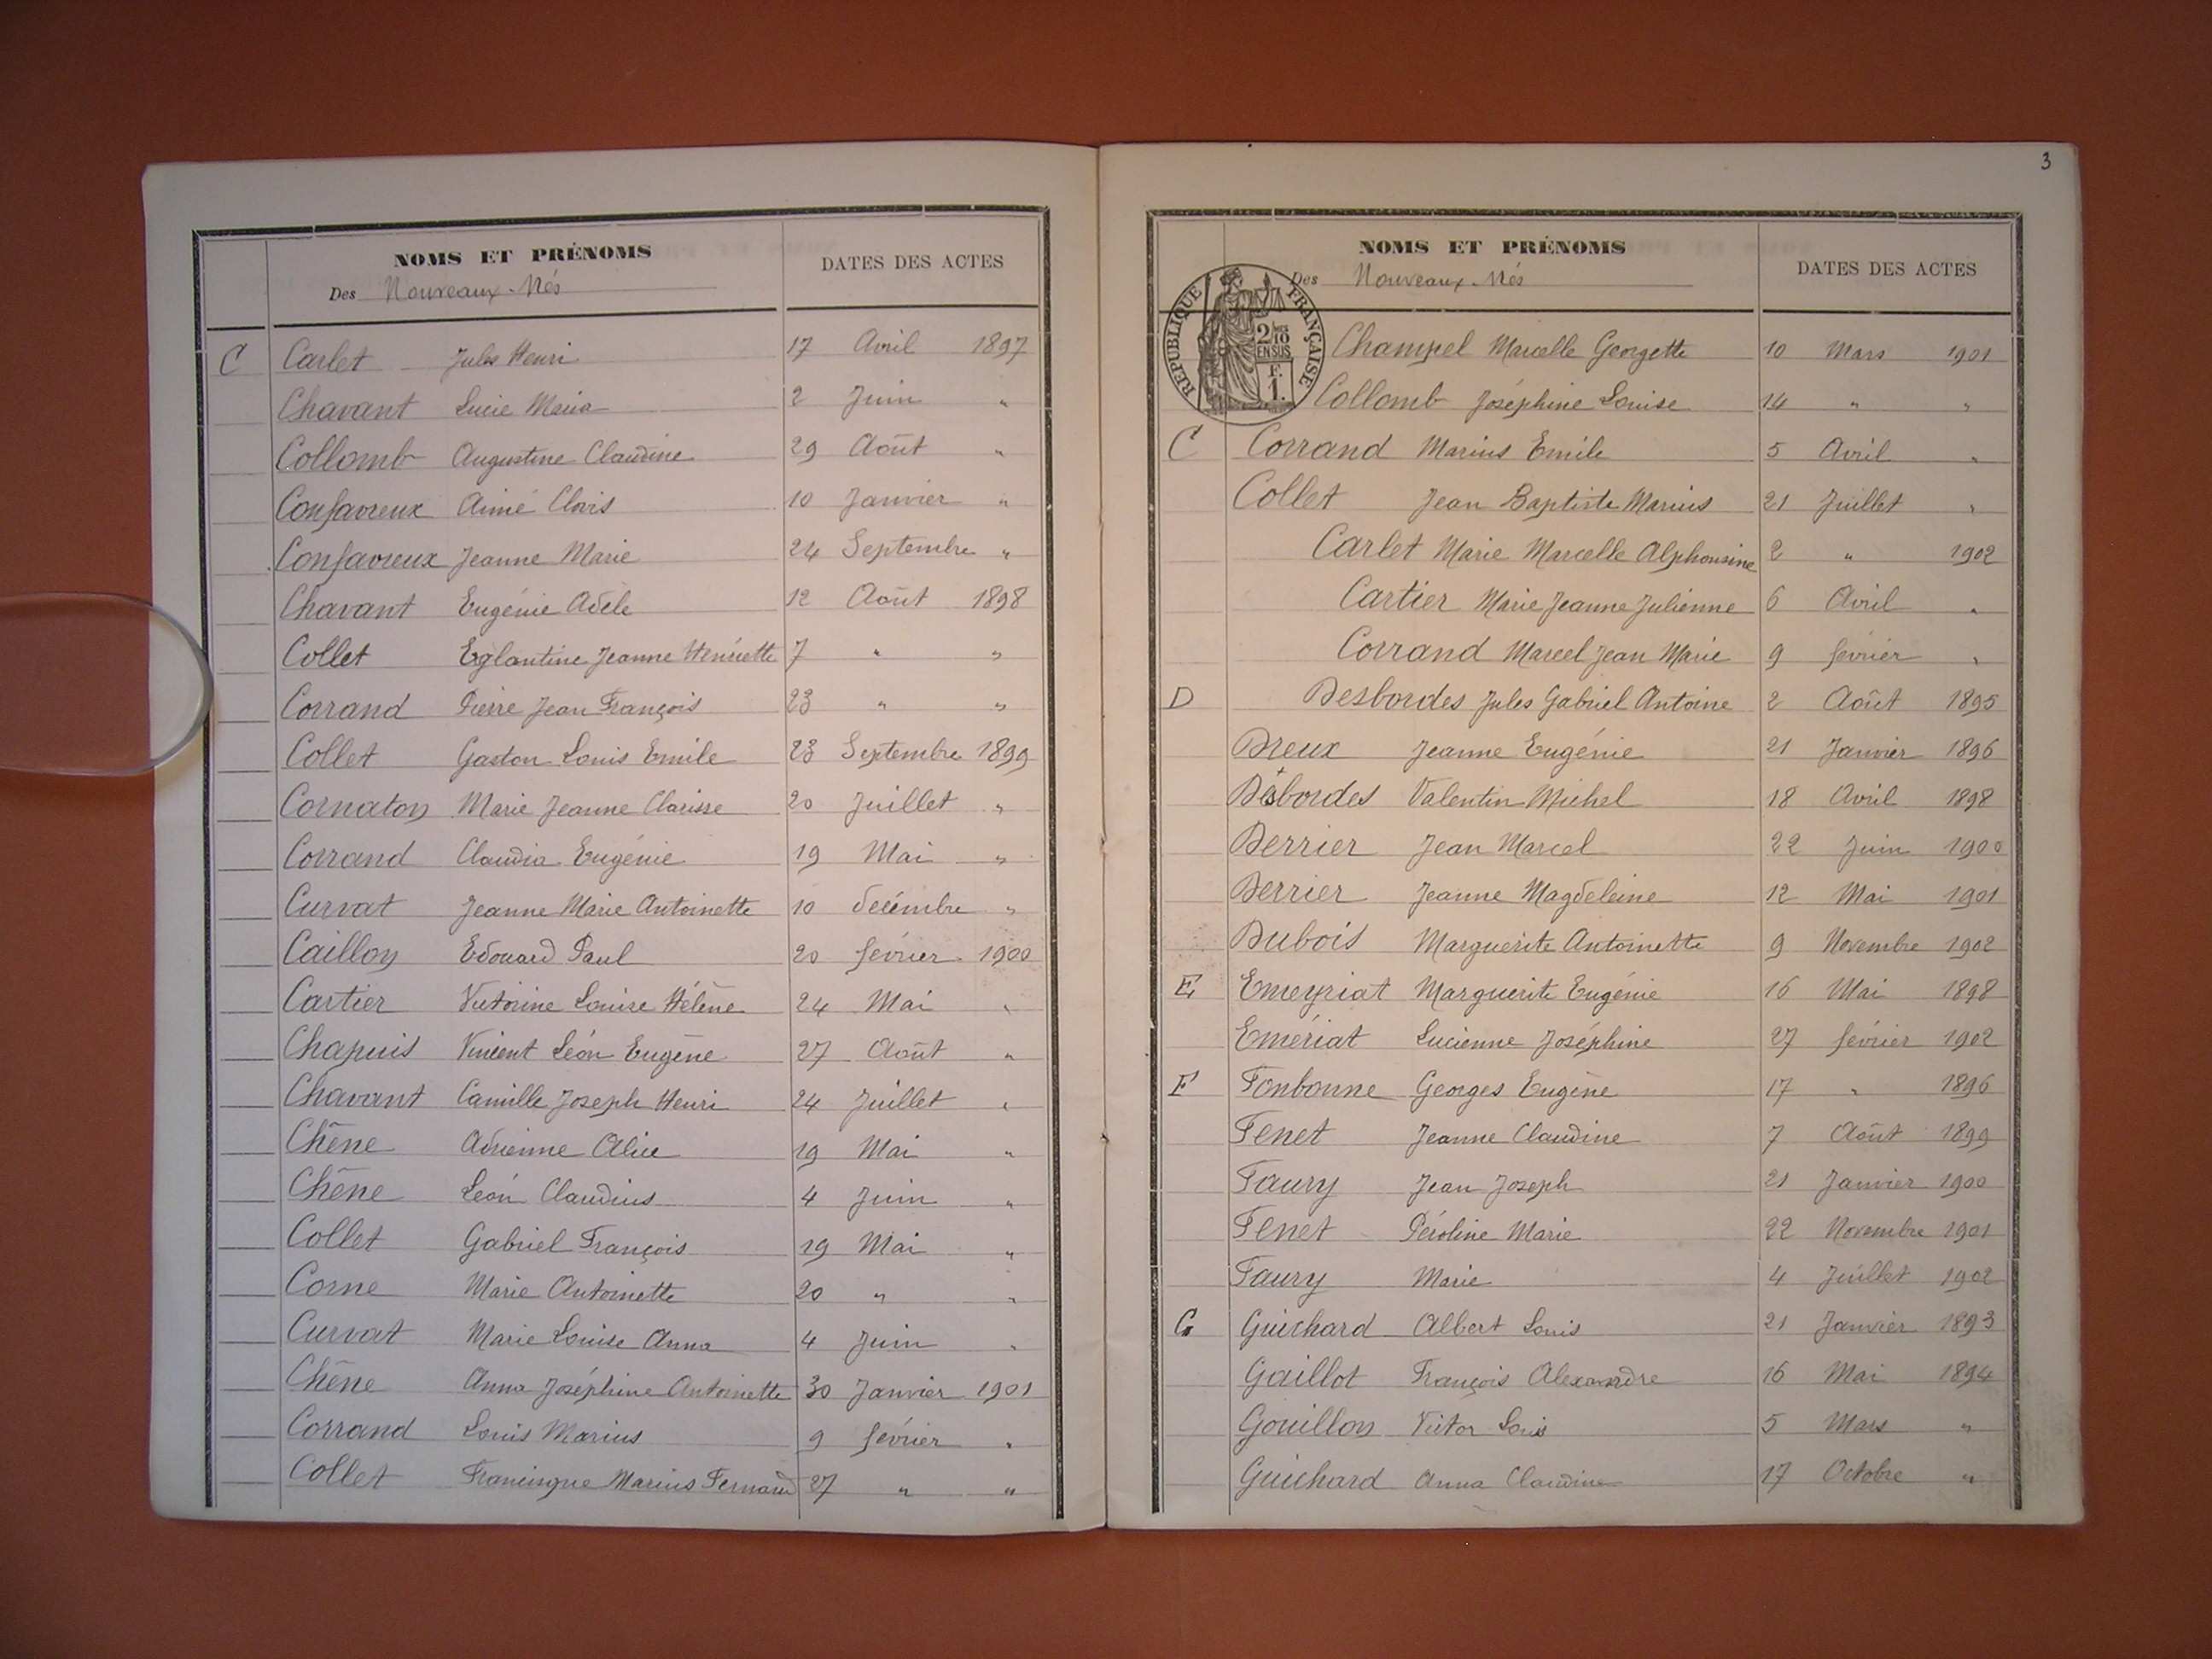 NOMS ET PRÉNOMS
DATES DES ACTES
Des Nouveaux-Nés
C Carlet Jules Henri 17 Avril 1897
Chavant Lucie Maria 2 Juin "
Collomb Augustine Claudine 29 Août "
Confavreux Aimé Clovis 10 Janvier "
Confavreux Jeanne Marie 24 Septembre "
Chavant Eugénie Adèle 12 Août 1898
Collet Eglantine Jeanne Henriette 7 " "
Corrand Pierre Jean François 23 " "
Collet Gaston Louis Emile 23 Septembre 1899
Cornaton Marie Jeanne Clarisse 20 Juillet "
Corrand Claudia Eugénie 19 Mai "
Curvat Jeanne Marie Antoinette 10 décembre "
Caillon Edouard Paul 20 février 1900
Cartier Victorine Louise Hélène 24 Mai "
Chapuis Vincent Léon Eugène 27 Août "
Chavant Camille Joseph Henri 24 Juillet "
Chêne Adrienne Alice 19 Mai "
Chêne Léon Claudius 4 Juin "
Collet Gabriel François 19 Mai "
Corne Marie Antoinette 20 " "
Curvat Marie Louise Anna 4 Juin "
Chêne Anna Joséphine Antoinette 30 Janvier 1901
Corrand Louis Marius 9 février "
Collet Francisque Marius Fernand 27 " "
3
NOMS ET PRÉNOMS
DATES DES ACTES
Des Nouveaux-Nés
REPUBLIQUE FRANÇAISE
2/10
EN SUS
F.
1.
Champel Marcelle Georgette 10 Mars 1901
Collomb Joséphine Louise 14 " "
C Corrand Marius Emile 5 Avril "
Collet Jean Baptiste Marius 21 Juillet "
Carlet Marie Marcelle Alphonsine 2 " 1902
Cartier Marie Jeanne Julienne 6 Avril "
Corrand Marcel Jean Marie 9 février "
D Desbordes Jules Gabriel Antoine 2 Août 1895
Dreux Jeanne Eugénie 21 Janvier 1896
Desbordes Valentin Michel 18 Avril 1898
Derrier Jean Marcel 22 Juin 1900
Derrier Jeanne Magdeleine 12 Mai 1901
Dubois Marguerite Antoinette 9 Novembre 1902
E Emeyriat Marguerite Eugénie 16 Mai 1898
Emériat Lucienne Joséphine 27 février 1902
F Fonbonne Georges Eugène 17 " 1896
Fenet Jeanne Claudine 7 Août 1899
Faury Jean Joseph 21 Janvier 1900
Fenet Péroline Marie 22 Novembre 1901
Faury Marie 4 Juillet 1902
G Guichard Albert Louis 21 Janvier 1893
Gaillot François Alexandre 16 Mai 1894
Gouillon Victor Louis 5 Mars "
Guichard Anna Claudine 17 Octobre "